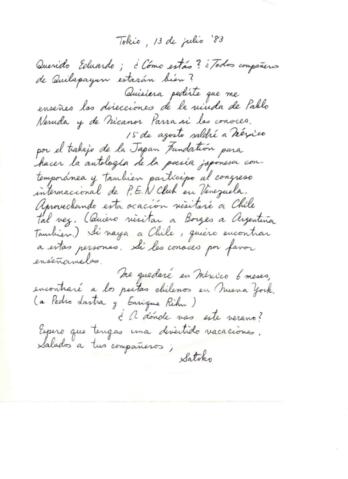 Tokio, 13 de julio '83
Querido Eduardo; ¿Cómo estás? ¿Todos compañeros
de Quilapayun estarán bien?
Quisiera pedirte que me
enseñes las direcciones de la viuda de Pablo
Neruda y de Nicanor Parra si los conoces.
15 de agosto saldré a México
por el trabajo de la Japan Fundation para
hacer la antología de la poesía japonesa con-
temporánea y tambien participo al congreso
internacional de P.E.N Club en Venezuela.
Aprovechando esta ocación visitaré a Chile
tal vez. (Quiero visitar a Borges a Argentina
tambien) Si vaya a Chile, quiero encontrar
a estas personas. Si les conoces por favor
enseñamelas.
Me quedaré en México 6 meses,
encontraré a los poetas chilenos en Nueva York.
(a Pedro Lastra y Enrique Lihn)
¿A dónde vas este verano?
Espero que tengas una divertido vacaciones.
Saludos a tus compañeros,
Satoko